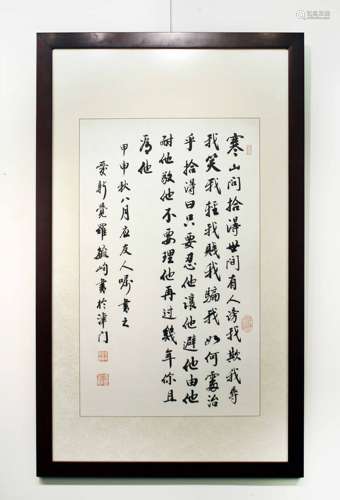 寒山问拾得世间有人谤我欺我辱
我笑我輕我賤我騙我如何處治
乎拾得曰只要忍他讓他避他由他
耐他敬他不要理他再过幾年你且
看他
甲申秋八月应友人嘱書之
愛新覺羅毓峋書於津门